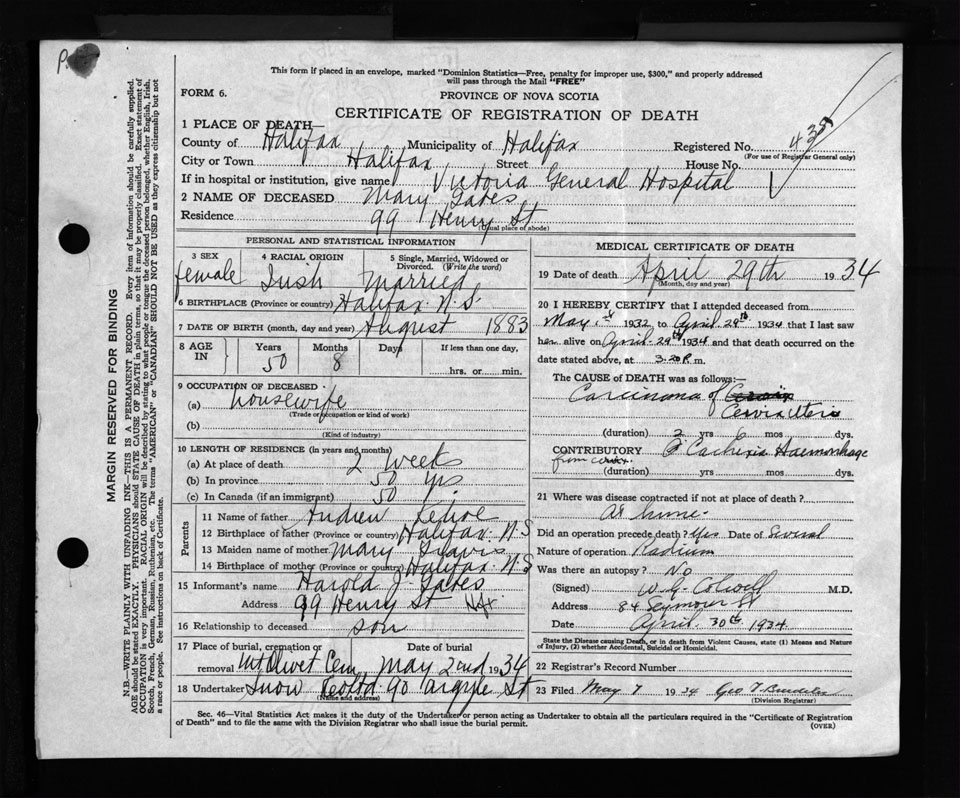 This form if placed in an envelope, marked "Dominion Statistics—Free, penalty for improper use, $300," and properly addressed
will pass through the Mail "FREE"
FORM 6.
PROVINCE OF NOVA SCOTIA
CERTIFICATE OF REGISTRATION OF DEATH
1 PLACE OF DEATH—
County of Halifax Municipality of Halifax Registered No. 435
(For use of Registrar General only)
City or Town Halifax Street House No.
If in hospital or institution, give name Victoria General Hospital
2 NAME OF DECEASED Mary
Residence 99 Henry St
(Usual place of abode)
PERSONAL AND STATISTICAL INFORMATION
3 SEX
female
4 RACIAL ORIGIN
Irish
5 Single, Married, Widowed or
Divorced. (Write the word)
Married
6 BIRTHPLACE (Province or country) Halifax N.S.
7 DATE OF BIRTH (month, day and year) August 1883
8 AGE IN
Years Months Days If less than one day,
50 8 hrs. or min.
9 OCCUPATION OF DECEASED
(a) housewife
(Trade or occupation or kind of work)
(b)
(Kind of industry)
10 LENGTH OF RESIDENCE (in years and months)
(a) At place of death 2 weeks
(b) In province 50 yrs
(c) In Canada (if an immigrant) 50
Parents
11 Name of father Andrew Kehoe
12 Birthplace of father (Province or country) Halifax N.S
13 Maiden name of mother Mary Travis
14 Birthplace of mother (Province or country) Halifax N.S
15 Informant's name Harold J.
Address 99 Henry St Hfx
16 Relationship to deceased son
17 Place of burial, cremation or removal Mt Olivet Cem
Date of burial May 2nd 1934
18 Undertaker Snow & Co Ltd 90 Argyle St
(Name and address)
MEDICAL CERTIFICATE OF DEATH
19 Date of death April 29th 1934
(Month, day and year)
20 I HEREBY CERTIFY that I attended deceased from
May 1st 1932 to April 29th 1934 that I last saw
her alive on April 29th 1934 and that death occurred on the
date stated above, at 3.20 P. m.
The CAUSE of DEATH was as follows:—
Carcinoma of
Cervix Uteri
(duration) 2 yrs 6 mos dys.
CONTRIBUTORY Cachexia Haemorrhage
from
(duration) yrs. mos. dys.
21 Where was disease contracted if not at place of death?
at home.
Did an operation precede death? Yes Date of Several
Nature of operation Radium
Was there an autopsy? No
(Signed) W. G. Colwell M.D.
Address 84 Seymour St
Date April 30th 1934
State the Disease causing Death, or in death from Violent Causes, state (1) Means and Nature
of Injury, (2) whether Accidental, Suicidal or Homicidal.
22 Registrar's Record Number
23 Filed May 7 1934 Geo
(Division Registrar)
Sec. 46—Vital Statistics Act makes it the duty of the Undertaker or person acting as Undertaker to obtain all the particulars required in the "Certificate of Registration
of Death" and to file the same with the Division Registrar who shall issue the burial permit.
(OVER)
MARGIN RESERVED FOR BINDING
N.B.—WRITE PLAINLY WITH UNFADING INK—THIS IS A PERMANENT RECORD. Every item of information should be carefully supplied.
AGE should be stated EXACTLY. PHYSICIANS should STATE CAUSE OF DEATH in plain terms, so that it may be properly classified. Exact statement of
OCCUPATION is very important. RACIAL ORIGIN will be described by stating to what people or tongue the deceased person belonged, whether English, Irish,
Scotch, French, German, Russian, Ruthenian, etc. The terms "AMERICAN" or "CANADIAN" SHOULD NOT BE USED as they express citizenship but not
a race or people. See instructions on back of Certificate.